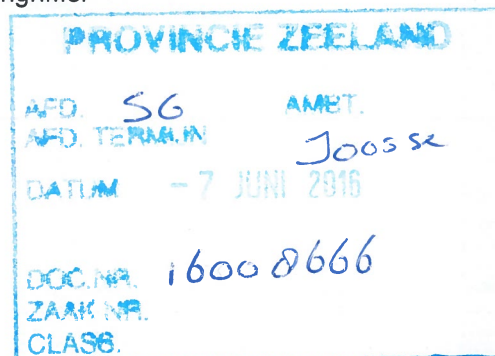 PROVINCIE ZEELAND
AFD. SG AMBT.
AFD. TERMIJN Joosse
DATUM - 7 JUNI 2016
DOC.NR. 16008666
ZAAK NR.
CLASS.